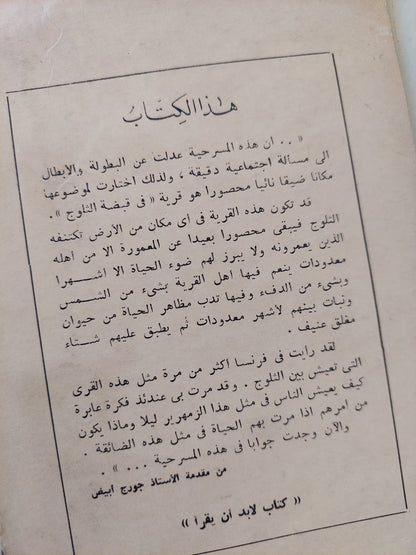 هذا الكتاب
« .. ان هذه المسرحية عدلت عن البطولة والابطال
الى مسألة اجتماعية دقيقة ، ولذلك اختارت لموضوعها
مكانا ضيقا نائيا محصورا هو قرية « فى قبضة الثلوج » .
قد تكون هذه القرية فى أى مكان من الأرض تكتنفه
الثلوج فيبقى محصورا بعيدا عن المعمورة الا من أهله
الذين يعمرونه ولا يبرز لهم ضوء الحياة الا اشــهرا
معدودات ينعم فيها اهل القرية بشىء من الشـمس
وبشىء من الدفء وفيها تدب مظاهر الحياة من حيوان
ونبات بينهم لأشهر معدودات ثم يطبق عليهم شــتاء
مغلق عنيف .
لقد رايت فى فرنسا اكثر من مرة مثل هذه القرى
التى تعيش بين الثلوج . وقد مرت بى عندئذ فكرة عابرة
كيف يعيش الناس فى مثل هذا الزمهرير ليلا وماذا يكون
من امرهم اذا مرت بهم الحياة فى مثل هذه الضائقة .
والآن وجدت جوابا فى هذه المسرحية ... » .
من مقدمة الأستاذ جورج ابيض
« كتاب لابد أن يقرأ »